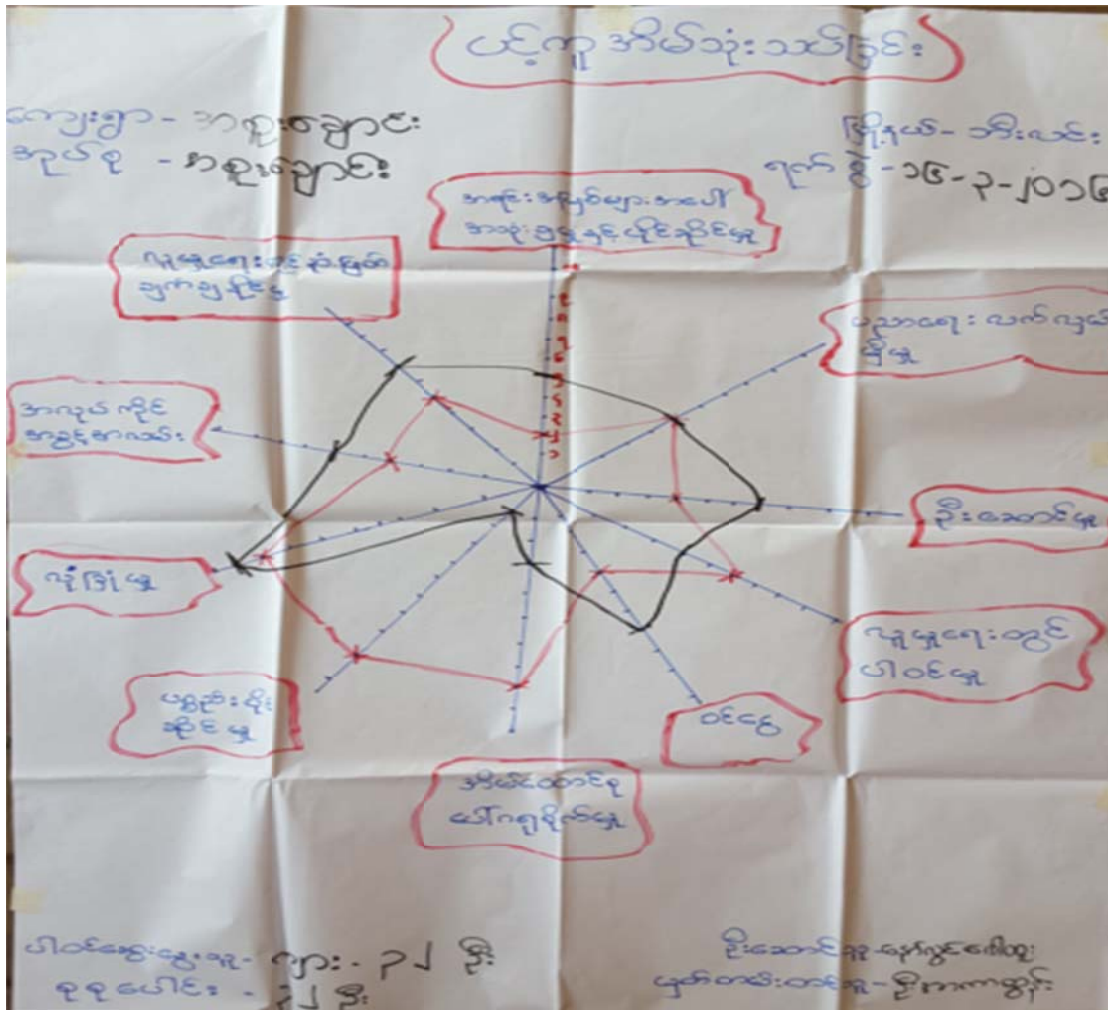 ပင့်ကူအိမ်သုံးသပ်ခြင်း
ကျေးရွာ - အစူးချောင်း
အုပ်စု - အစူးချောင်း
မြို့နယ် - ဘီးလင်း
ရက်စွဲ - ၁၆-၃-၂၀၁၆
အရင်းအမြစ်များအပေါ်
အသုံးချမှုနှင့်ပိုင်ဆိုင်မှု
လူမှုရေးတွင် ဆုံးဖြတ်
ချက်ချနိုင်မှု
ပညာရေး လက်လှမ်း
မှီမှု
အလုပ်ကိုင်
အခွင့်အလမ်း
ဦးဆောင်မှု
လုံခြုံမှု
လူမှုရေးတွင်
ပါဝင်မှု
ပစ္စည်းပိုင်
ဆိုင်မှု
ဝင်ငွေ
အိမ်ထောင်စု
ပေါ်ဂရုစိုက်မှု
ပါဝင်ဆွေးနွေးသူ - ကျား - ၃၂ ဦး
စုစုပေါင်း - ၃၂ ဦး
ဦးဆောင်သူ -
မှတ်တမ်းတင်သူ -